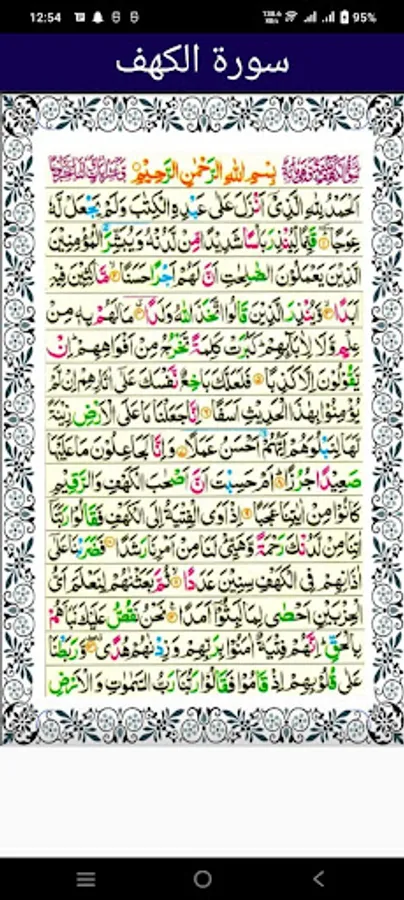 12:54
138.6 KB/s
95%
سورة الكهف
بِسْمِ اللهِ الرَّحْمٰنِ الرَّحِيْمِ
اَلْحَمْدُ لِلّٰهِ الَّذِيْٓ اَنْزَلَ عَلٰى عَبْدِهِ الْكِتٰبَ وَلَمْ يَجْعَلْ لَّهٗ
عِوَجًا ۝۱ قَيِّمًا لِّيُنْذِرَ بَاْسًا شَدِيْدًا مِّنْ لَّدُنْهُ وَيُبَشِّرَ الْمُؤْمِنِيْنَ
الَّذِيْنَ يَعْمَلُوْنَ الصّٰلِحٰتِ اَنَّ لَهُمْ اَجْرًا حَسَنًا ۝۲ مَّاكِثِيْنَ فِيْهِ
اَبَدًا ۝۳ وَّيُنْذِرَ الَّذِيْنَ قَالُوا اتَّخَذَ اللّٰهُ وَلَدًا ۝۴ مَا لَهُمْ بِهٖ مِنْ
عِلْمٍ وَّلَا لِاٰبَآئِهِمْ كَبُرَتْ كَلِمَةً تَخْرُجُ مِنْ اَفْوَاهِهِمْ اِنْ
يَّقُوْلُوْنَ اِلَّا كَذِبًا ۝۵ فَلَعَلَّكَ بَاخِعٌ نَّفْسَكَ عَلٰٓى اٰثَارِهِمْ اِنْ لَّمْ
يُؤْمِنُوْا بِهٰذَا الْحَدِيْثِ اَسَفًا ۝۶ اِنَّا جَعَلْنَا مَا عَلَى الْاَرْضِ زِيْنَةً
لَّهَا لِنَبْلُوَهُمْ اَيُّهُمْ اَحْسَنُ عَمَلًا ۝۷ وَاِنَّا لَجَاعِلُوْنَ مَا عَلَيْهَا
صَعِيْدًا جُرُزًا ۝۸ اَمْ حَسِبْتَ اَنَّ اَصْحٰبَ الْكَهْفِ وَالرَّقِيْمِ
كَانُوْا مِنْ اٰيٰتِنَا عَجَبًا ۝۹ اِذْ اَوَى الْفِتْيَةُ اِلَى الْكَهْفِ فَقَالُوْا رَبَّنَآ
اٰتِنَا مِنْ لَّدُنْكَ رَحْمَةً وَّهَيِّئْ لَنَا مِنْ اَمْرِنَا رَشَدًا ۝۱۰ فَضَرَبْنَا عَلٰٓى
اٰذَانِهِمْ فِي الْكَهْفِ سِنِيْنَ عَدَدًا ۝۱۱ ثُمَّ بَعَثْنٰهُمْ لِنَعْلَمَ اَيُّ
الْحِزْبَيْنِ اَحْصٰى لِمَا لَبِثُوْٓا اَمَدًا ۝۱۲ نَحْنُ نَقُصُّ عَلَيْكَ نَبَاَهُمْ
بِالْحَقِّ اِنَّهُمْ فِتْيَةٌ اٰمَنُوْا بِرَبِّهِمْ وَزِدْنٰهُمْ هُدًى ۝۱۳ وَّرَبَطْنَا
عَلٰى قُلُوْبِهِمْ اِذْ قَامُوْا فَقَالُوْا رَبُّنَا رَبُّ السَّمٰوٰتِ وَالْاَرْضِ